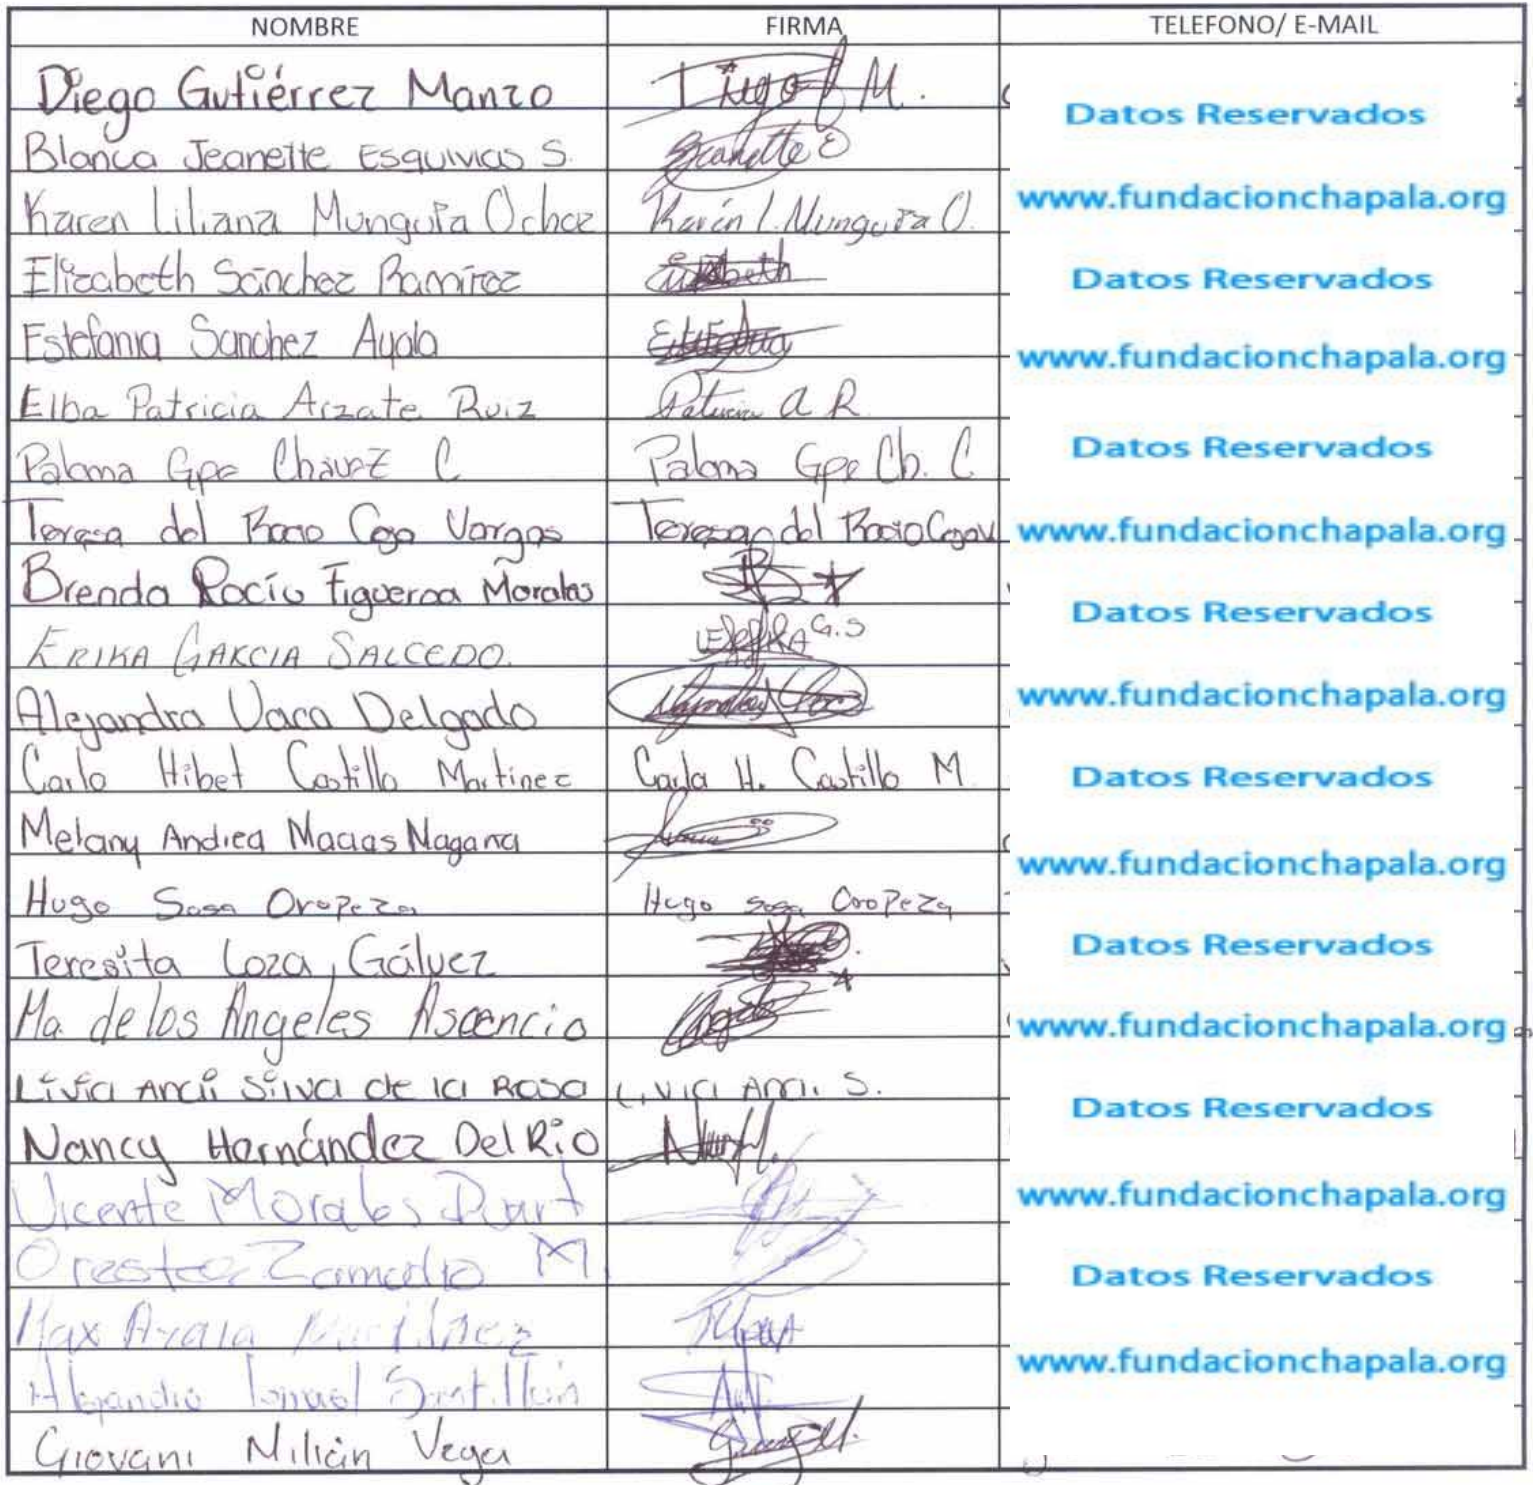 NOMBRE FIRMA TELEFONO/ E-MAIL
Diego Gutiérrez Manzo Diego M.
Datos Reservados
Blanca Jeanette Esquivias S. Jeanette E
Karen Liliana Munguía Ochoa Karen L. Munguía O.
www.fundacionchapala.org
Elizabeth Sánchez Ramírez Elizabeth
Datos Reservados
Estefania Sanchez Ayala Estefania
www.fundacionchapala.org
Elba Patricia Arzate Ruiz Patricia A R.
Paloma Gpe Chávez C Paloma Gpe Ch. C
Datos Reservados
Teresa del Rocio Cega Vargas Teresa del Rocio Cega V
www.fundacionchapala.org
Brenda Rocío Figueroa Morales
Datos Reservados
ERIKA GARCIA SALCEDO. G.S
Alejandra Vaca Delgado
www.fundacionchapala.org
Carla Hibet Castillo Martinez Carla H. Castillo M
Datos Reservados
Melany Andrea Macias Nagana
www.fundacionchapala.org
Hugo Sosa Oropeza Hugo Sosa Oropeza
Teresita Loza Gálvez
Datos Reservados
Ma. de los Angeles Ascencio
www.fundacionchapala.org
Livia Anaii Silva de la Rosa Livia Anai. S.
Datos Reservados
Nancy Hernández Del Río
Vicente Morales Duart
www.fundacionchapala.org
Orestes Zamudio M.
Datos Reservados
Max Ayala Martinez
www.fundacionchapala.org
Alejandro Ismael Santillán
Giovani Milián Vega